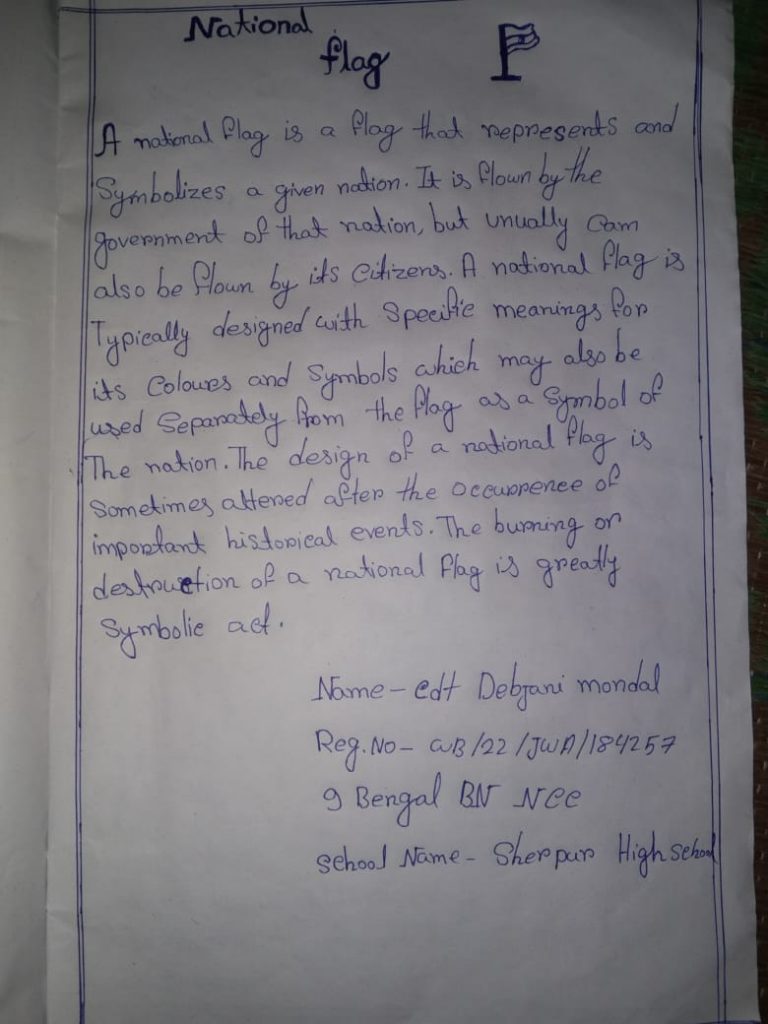 National
flag
A national flag is a flag that represents and
Symbolizes a given nation. It is flown by the
government of that nation, but unually cam
also be flown by its citizens. A national flag is
Typically designed with specific meanings for
its Coloures and symbols which may also be
used separately from the flag as a symbol of
The nation. The design of a national flag is
sometimes altered after the occurrence of
important historical events. The burning or
destruction of a national flag is greatly
symbolic act.
Name - cdt Debjani mondal
Reg. No - WB/22/JWA/184257
9 Bengal BN NCC
school Name - Sherpur High school